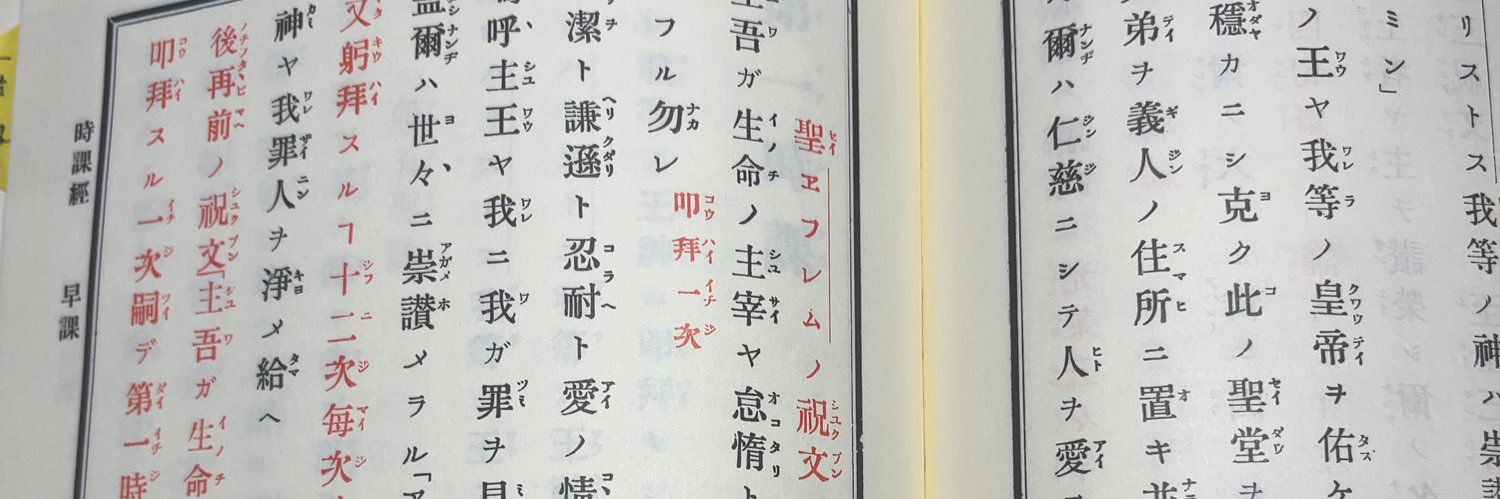 リストス我等ノ神ハ崇
ミン」
ノ王ヤ我等ノ皇帝ヲ佑ケ
穩カニシ克ク此ノ聖堂ヲ
弟ヲ義人ノ住所ニ置キ並
爾ハ仁慈ニシテ人ヲ愛ス
聖ヱフレムノ祝文
主吾ガ生命ノ主宰ヤ怠惰ト
フル勿レ 叩拜一次
潔ト謙遜ト忍耐ト愛ノ情
嗚呼、主王ヤ我ニ我ガ罪ヲ見
蓋爾ハ世々ニ崇讃メラル「ア
又躬拜スルヿ十二次每次
神ヤ我罪人ヲ淨メ給ヘ
後再前ノ祝文「主吾ガ生命
叩拜スル一次嗣デ第一時
時課經 早課